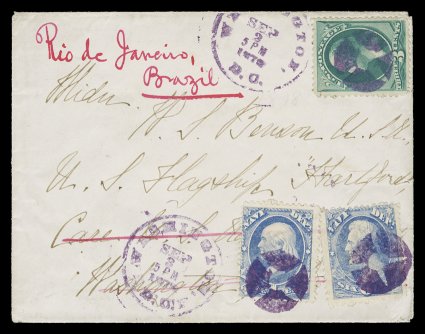 Rio de Janeiro,
Brazil
WASHINGTON,
SEP
2
5 PM
1878
D.C.
Midn W. S. Benson U.S.N.
U. S. Flagship "Hartford"
Care
Washington
WASHINGTON
SEP
2
5 PM
D.C.
NAVY DEPT
NAVY DEPT